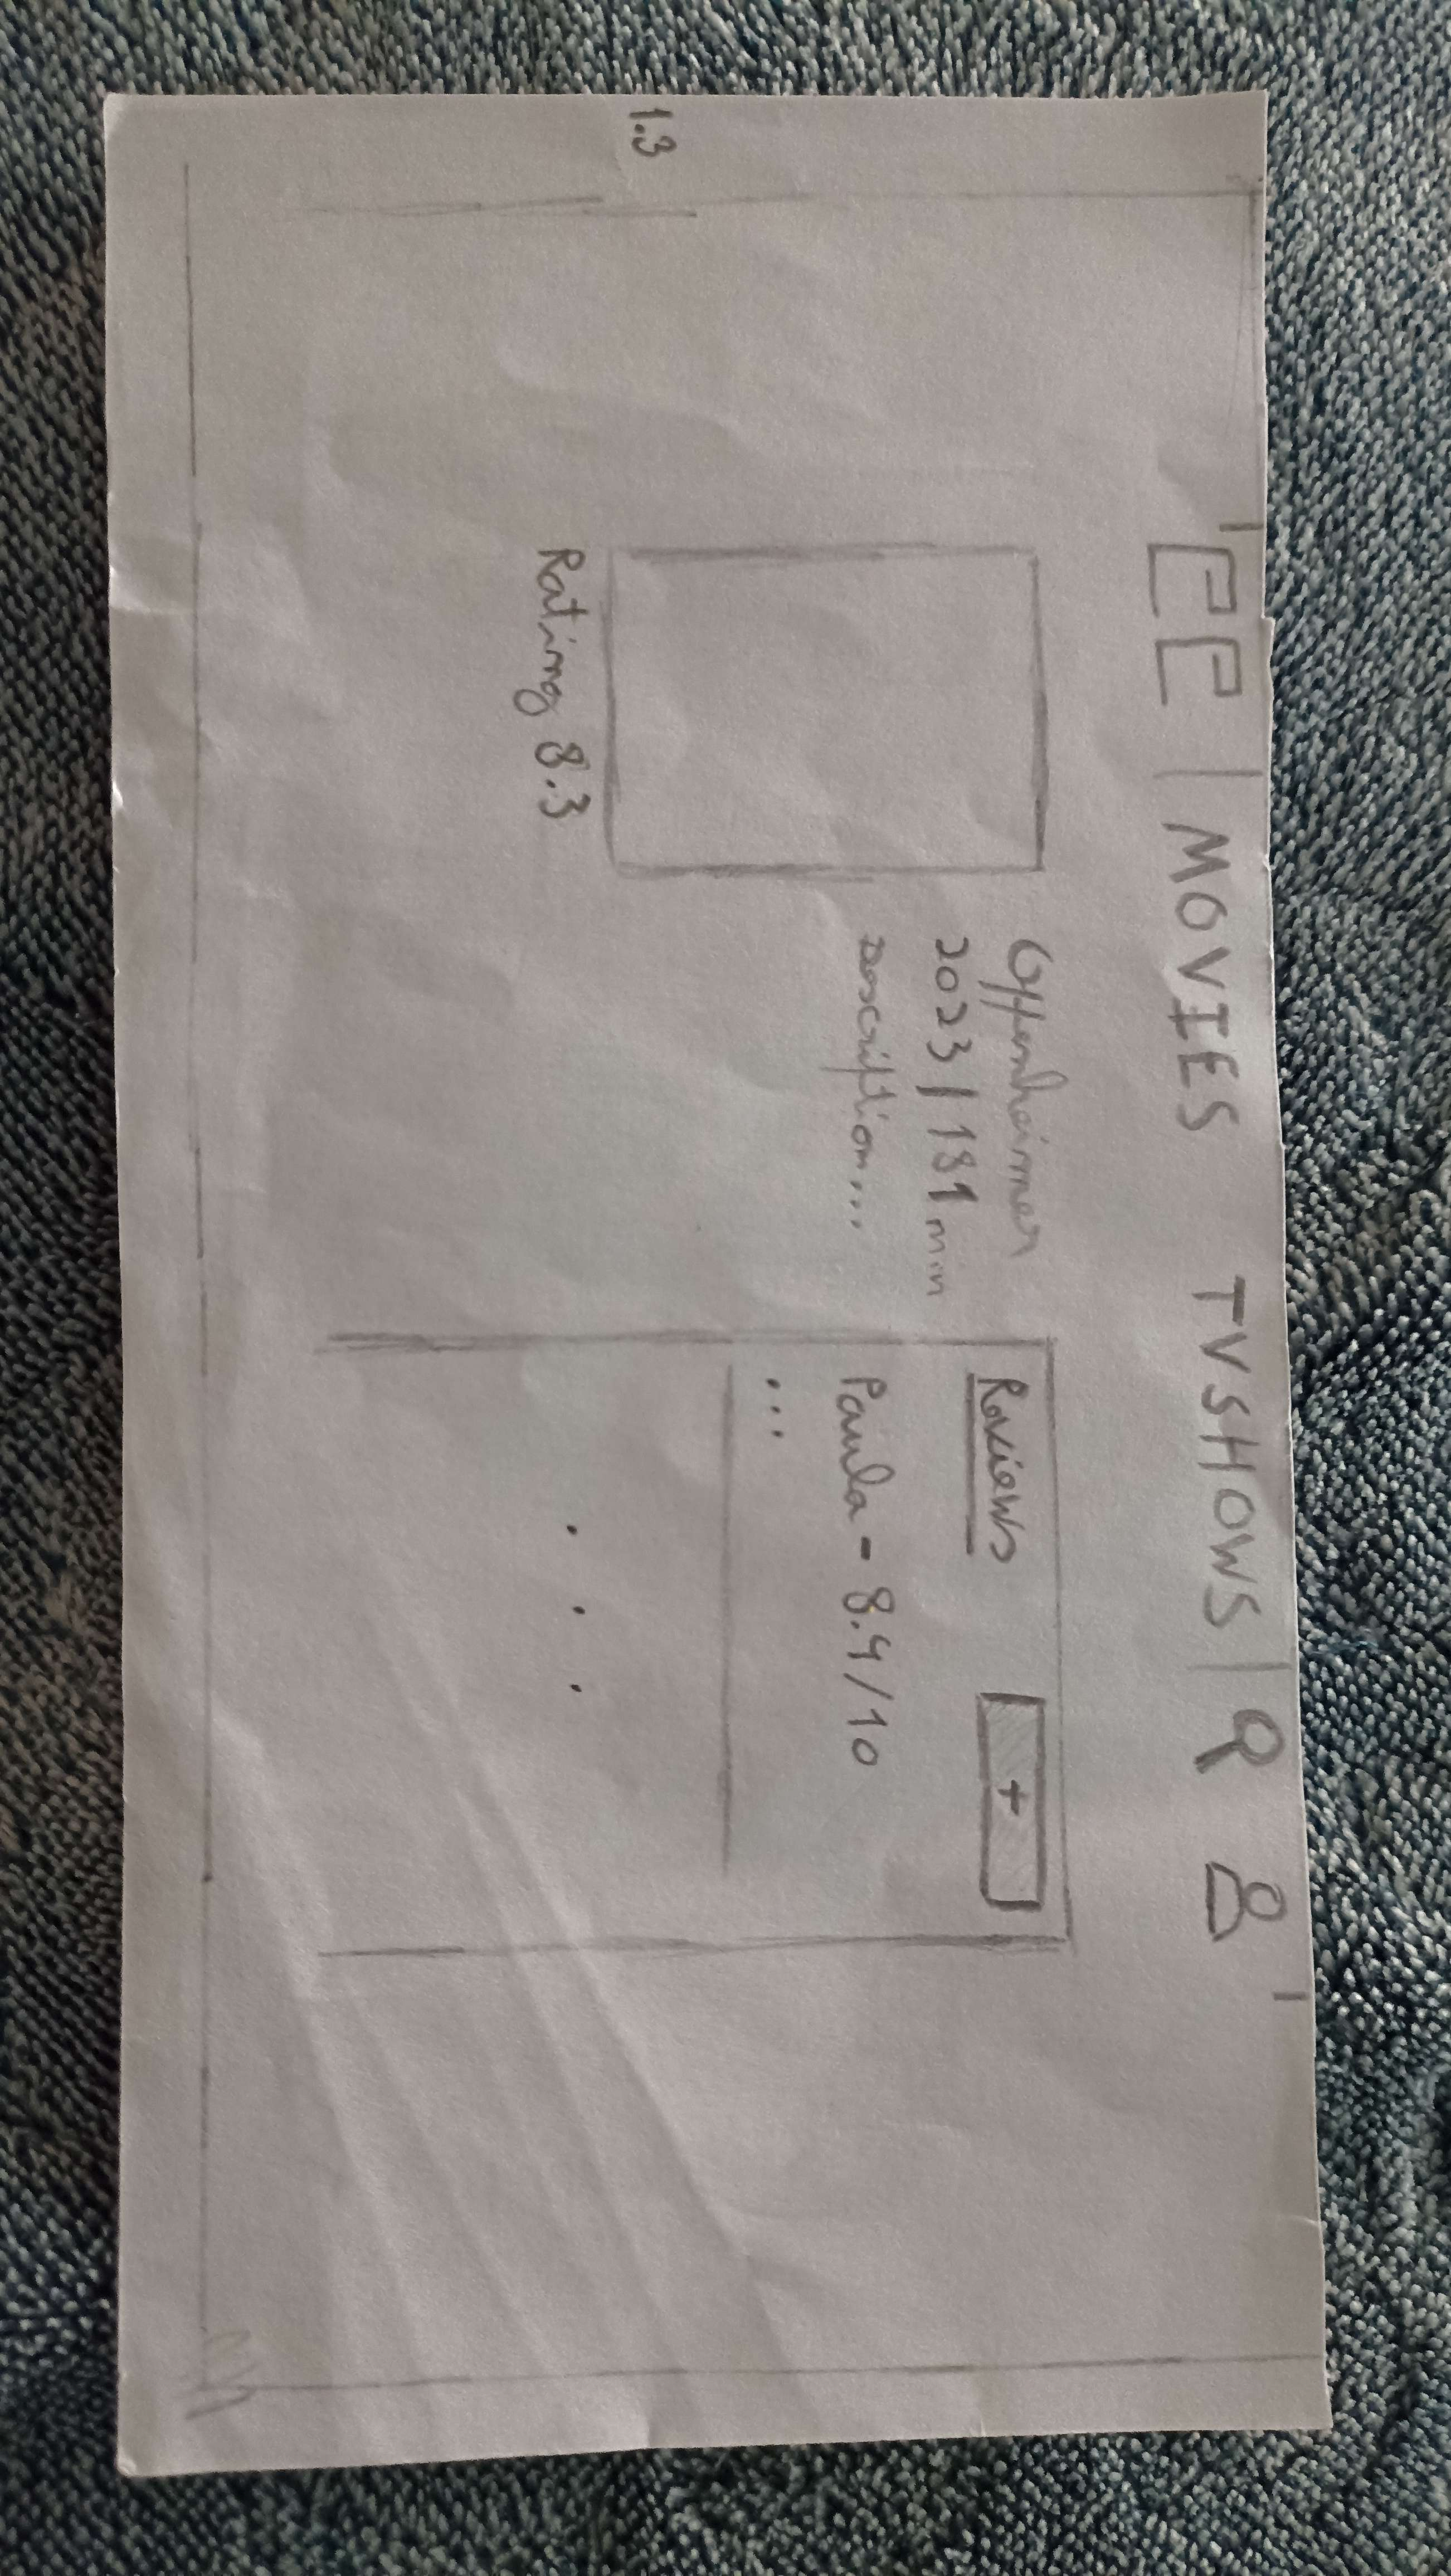 CC | MOVIES TVSHOWS |
Oppenheimer
2023 | 181 min
Description...
Rating 8.3
Reviews +
Paula - 8.4/10
...
. . .
1.3